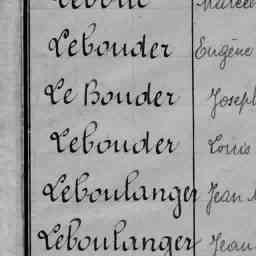 Lebouder Eugène
Le Bouder Joseph
Lebouder Louis
Leboulanger Jean
Leboulanger Jean